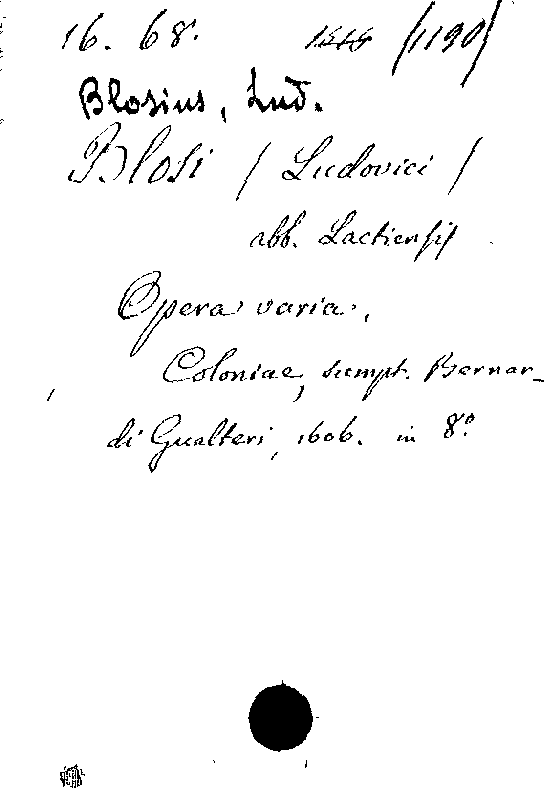 16. 68. /1190/
Blosius, Lud.
Blosi / Ludovici /
abb. Lactiensis
Opera varia,
Coloniae, sumpt. Bernar-
di Gualteri, 1606. in 8º